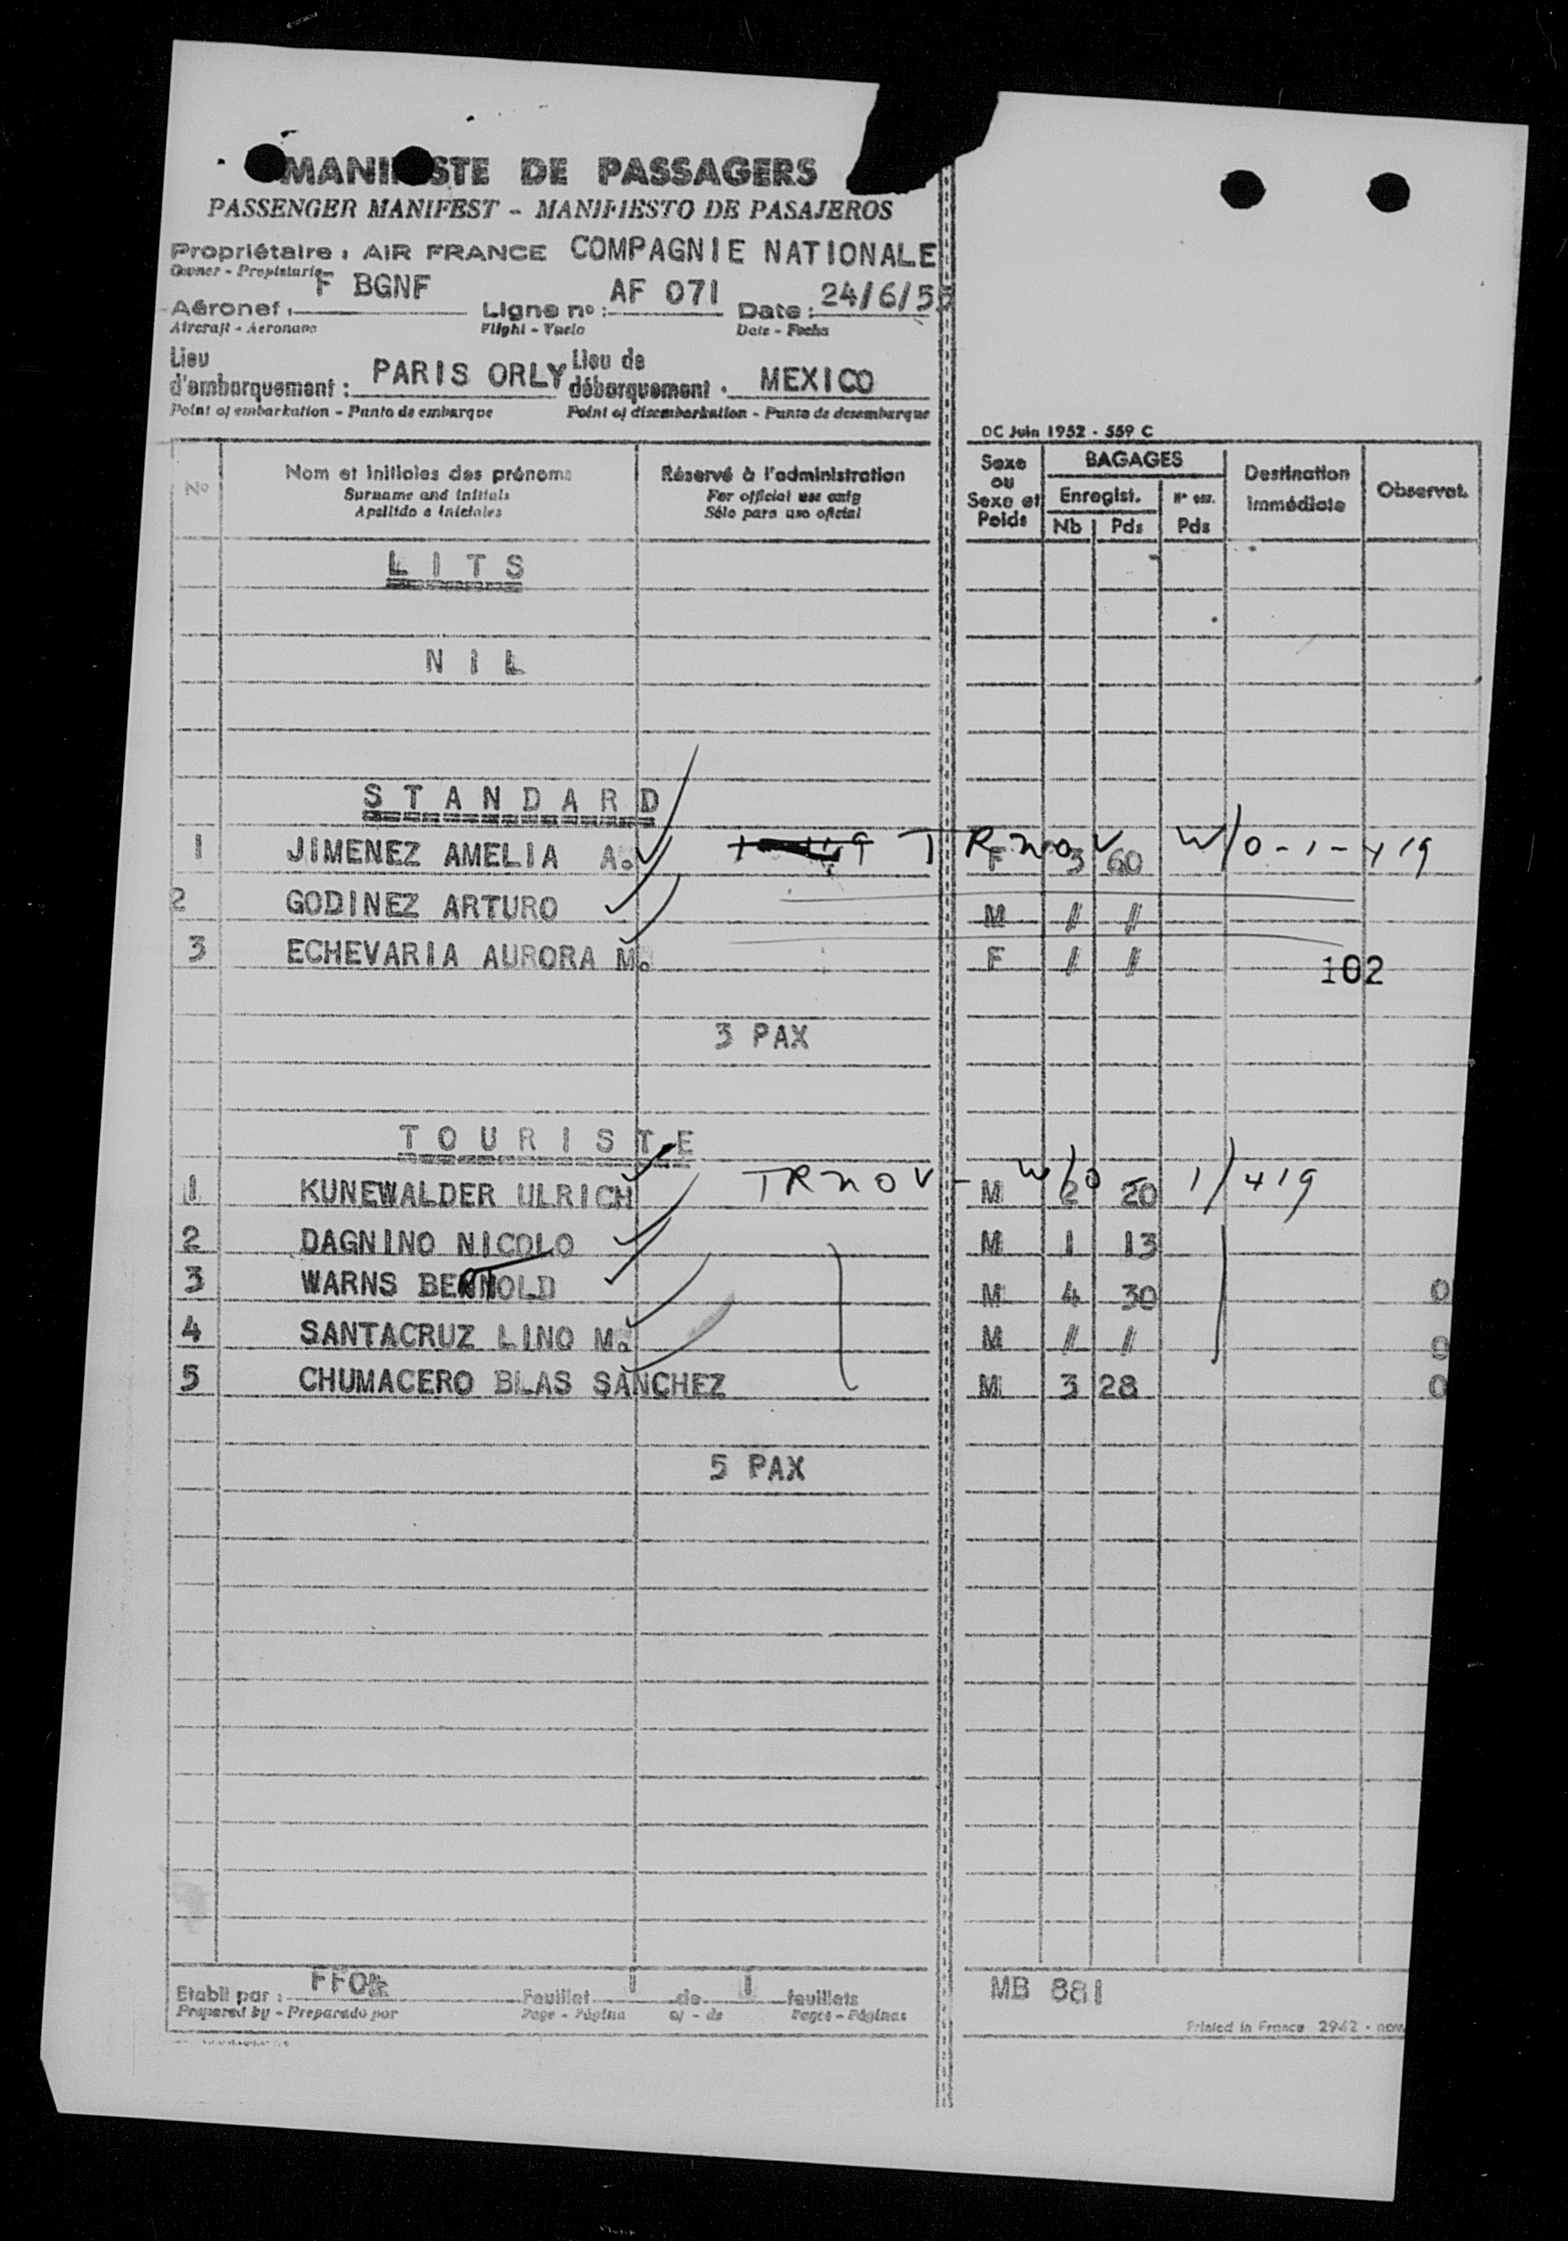 MANIFESTE DE PASSAGERS
PASSENGER MANIFEST - MANIFIESTO DE PASAJEROS
Propriétaire : AIR FRANCE COMPAGNIE NATIONALE
Owner - Propietario
Aéronef : F BGNF Ligne nº : AF 071 Date : 24/6/55
Aircraft - Aeronave Flight - Vuelo Date - Fecha
Lieu d'embarquement : PARIS ORLY Lieu de débarquement : MEXICO
Point of embarkation - Punto de embarque Point of disembarkation - Punto de desembarque
DC Juin 1952 - 559 C
Nº Nom et initiales des prénoms Réservé à l'administration Sexe ou Sexe et Poids BAGAGES Destination immédiate Observat.
Surname and initials For official use only Enregist.
Apellido e iniciales Sólo para uso oficial Nb Pds Pds
L I T S
N I L
S T A N D A R D
1 JIMENEZ AMELIA A. TRNOV F 3 60 W/O-1-419
2 GODINEZ ARTURO M // //
3 ECHEVARIA AURORA M. F // //
102
3 PAX
T O U R I S T E
1 KUNEWALDER ULRICH TRNOV - W/O M 2 20 1/419
2 DAGNINO NICOLO M 1 13
3 WARNS BERNOLD M 4 30 0
4 SANTACRUZ LINO M. M // // 0
5 CHUMACERO BLAS SANCHEZ M 3 28 0
5 PAX
Etabli par : Feuillet 1 de 1 feuillets MB 881
Prepared by - Preparado por Page - Página of - de Pages - Páginas
Printed in France 2942 - nov